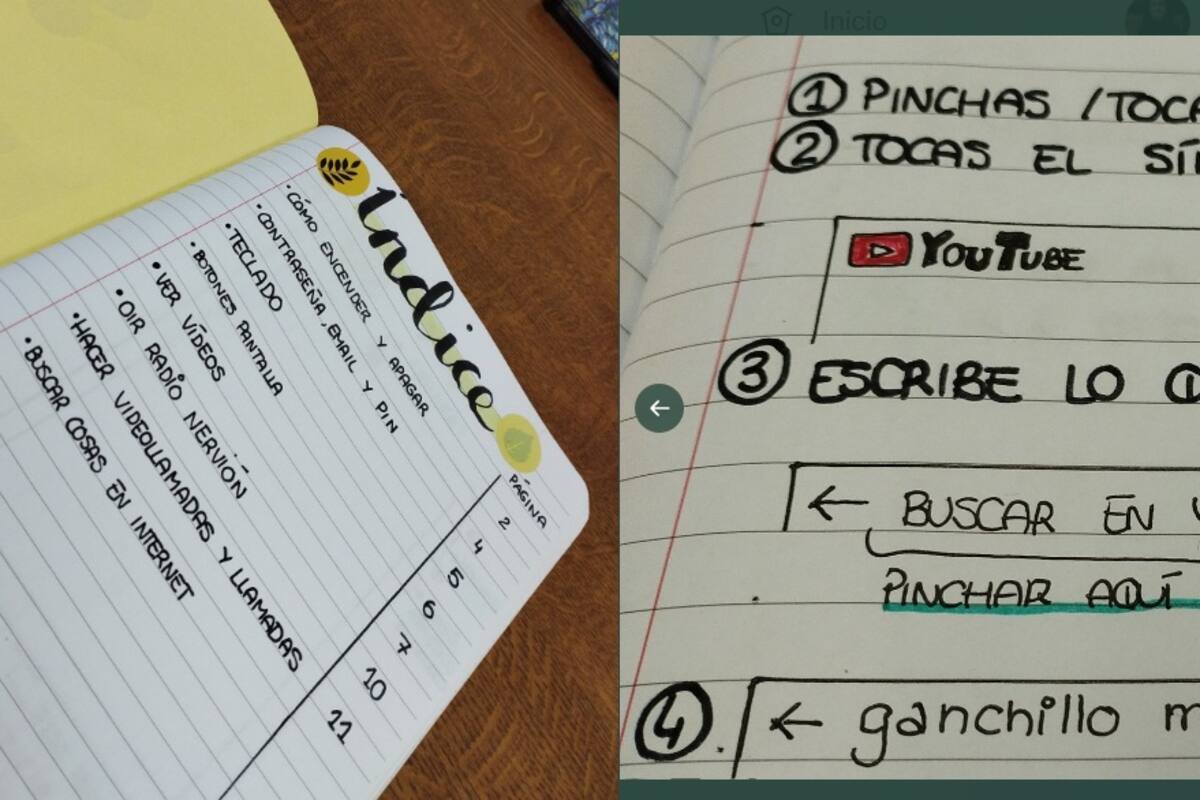 Índice
PÁGINA
• CÓMO ENCENDER Y APAGAR 2
• CONTRASEÑA, EMAIL Y PIN 4
• TECLADO 5
• BOTONES PANTALLA 6
• VER VÍDEOS 7
• OIR RADIO NERVIÓN 10
• HACER VIDEOLLAMADAS Y LLAMADAS 11
• BUSCAR COSAS EN INTERNET
Inicio
① PINCHAS / TOCA
② TOCAS EL SÍ
YOUTUBE
③ ESCRIBE LO
← BUSCAR EN
PINCHAR AQUÍ
④. ← ganchillo m